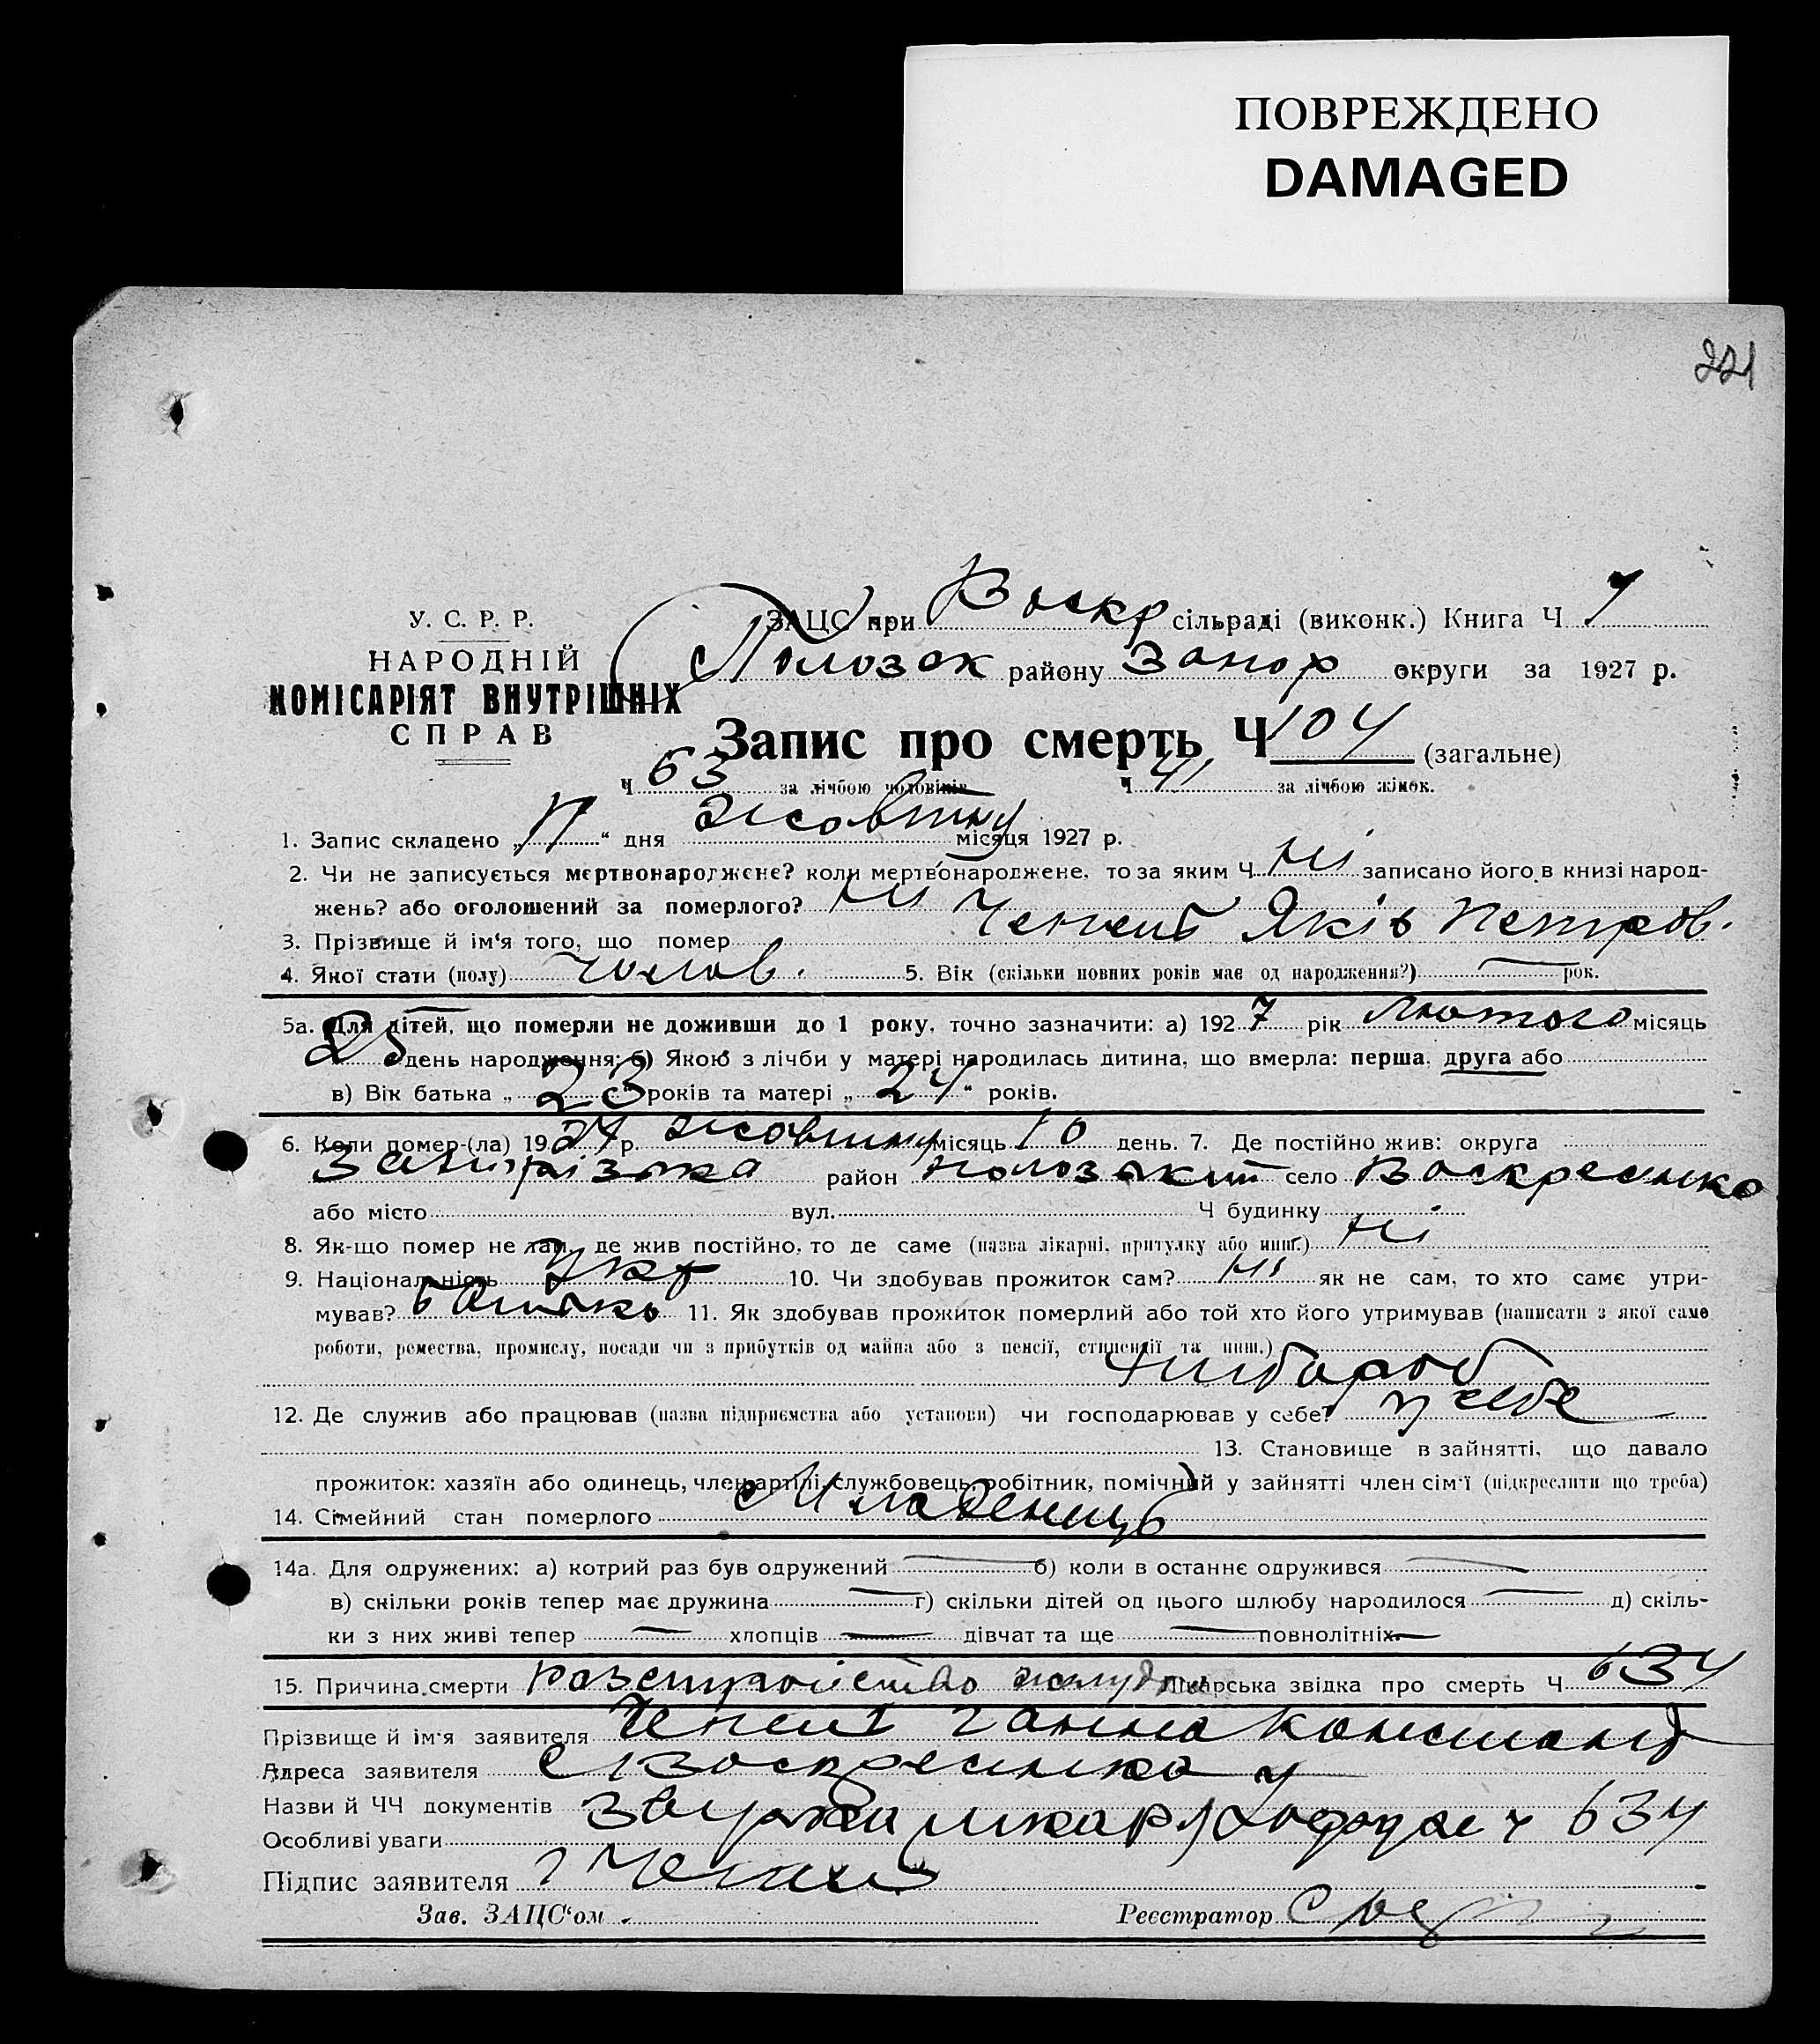 ПОВРЕЖДЕНО
DAMAGED
221
У. С. Р. Р.
НАРОДНІЙ
КОМІСАРІЯТ ВНУТРІШНІХ
СПРАВ
ЗАЦС при Воскр сільраді (виконк.) Книга Ч
Полозок району Запор округи за 1927 р.
Запис про смерть Ч 104 (загальне)
Ч 63 за лічбою чоловіків Ч 41 за лічбою жінок.
1. Запис складено „11“ дня жовтня місяця 1927 р.
2. Чи не записується мертвонароджене? коли мертвонароджене, то за яким Ч Ні записано його в книзі народ-
жень? або оголошений за померлого? Ні
3. Прізвище й ім‘я того, що помер Яків Петров.
4. Якої стати (полу) чолов. 5. Вік (скільки повних років має од народження?) — рок.
5а. Для дітей, що померли не доживши до 1 року, точно зазначити: а) 1927 рік Лютого місяць
25 день народження; б) Якою з лічби у матері народилась дитина, що вмерла: перша, друга або
в) Вік батька „23“ років та матері „24“ років.
6. Коли помер-(ла) 1927 р. жовтня місяць 10 день. 7. Де постійно жив: округа
Запорізька район Полозький село Воскресенка
або місто вул. Ч будинку
8. Як-що помер не там, де жив постійно, то де саме (назва лікарні, притулку або инш.) Ні
9. Національність Укр 10. Чи здобував прожиток сам? Ні як не сам, то хто саме утри-
мував? батько 11. Як здобував прожиток померлий або той хто його утримував (написати з якої саме
роботи, ремества, промислу, посади чи з прибутків од майна або з пенсії, стипендії та инш.)
хлібороб
12. Де служив або працював (назва підприємства або установи) чи господарював у себе? у себе
13. Становище в зайнятті, що давало
прожиток: хазяїн або одинець, член артілі, службовець, робітник, помічний у зайнятті член сім‘ї (підкреслити що треба)
14. Сімейний стан померлого Младенець
14а. Для одружених: а) котрий раз був одружений — б) коли в останнє одружився —
в) скільки років тепер має дружина — г) скільки дітей од цього шлюбу народилося — д) скіль-
ки з них живі тепер — хлопців — дівчат та ще — повнолітніх —
15. Причина смерти розстройство желудка Лікарська звідка про смерть Ч 634
Прізвище й ім‘я заявителя Ганна Констант
Адреса заявителя с Воскресенка
Назви й ЧЧ документів ч 634
Особливі уваги
Підпис заявителя
Зав. ЗАЦС‘ом Реєстратор